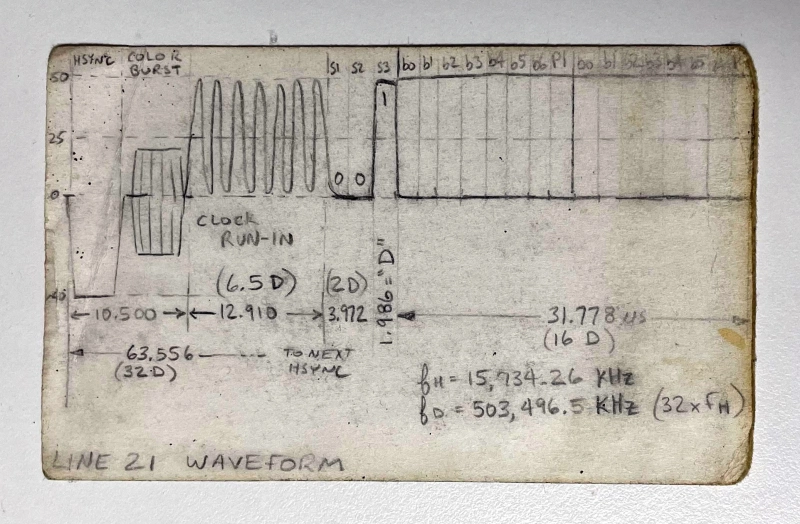 HSYNC COLOR BURST S1 S2 S3 b0 b1 b2 b3 b4 b5 b6 P1 b0 b1 b2 b3 b4 b5
50
25
0
0 0 1
CLOCK
RUN-IN
(6.5D) (2D) 1.986="D"
10.500 12.910 3.972 31.778 us
(16 D)
63.556 TO NEXT
(32D) HSYNC
fH = 15,734.26 KHz
fD = 503,496.5 KHz (32xfH)
LINE 21 WAVEFORM